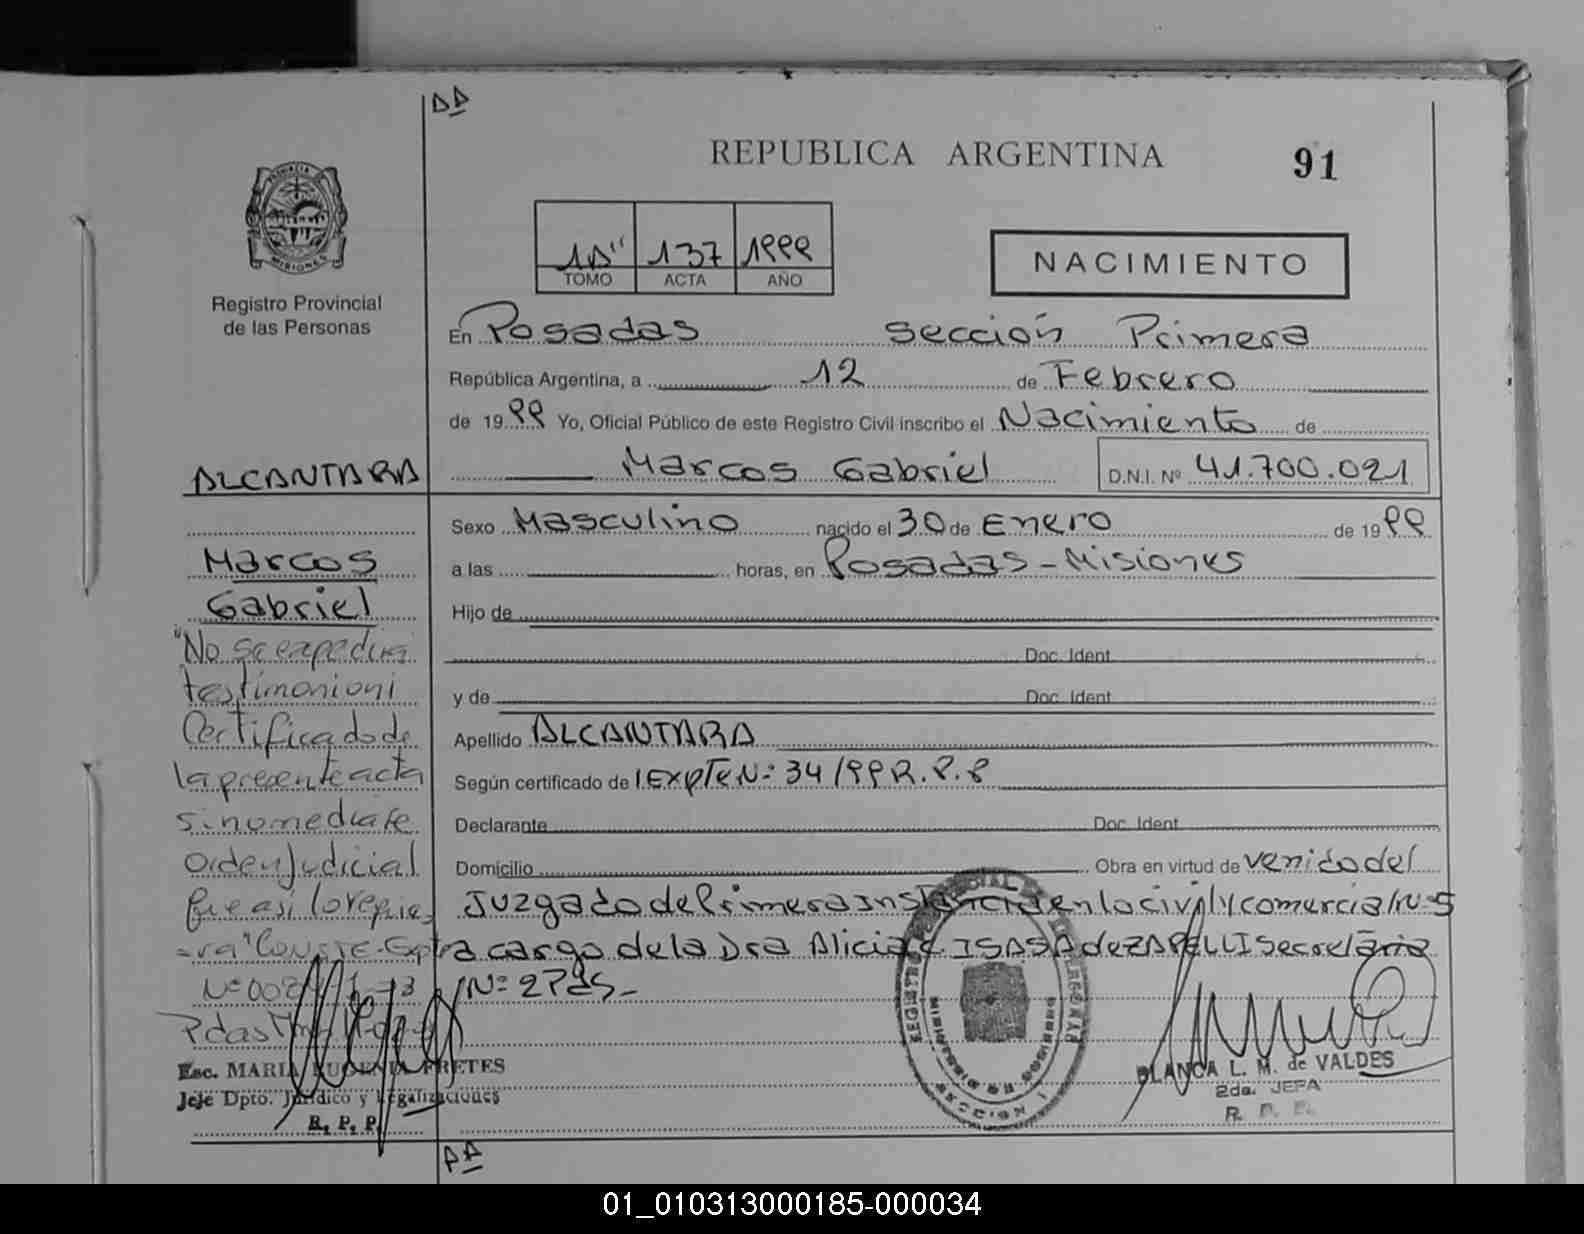 REPUBLICA ARGENTINA
91
1A" 137 1999
TOMO ACTA AÑO
NACIMIENTO
MISIONES
Registro Provincial
de las Personas
En Posadas Sección Primera
República Argentina, a 12 de Febrero
de 1999 Yo, Oficial Público de este Registro Civil inscribo el Nacimiento de
Marcos Gabriel D.N.I. Nº 41.700.021
Sexo Masculino nacido el 30 de Enero de 1999
a las horas, en Posadas - Misiones
Hijo de
Doc. Ident.
y de Doc. Ident.
Apellido ALCANTARA
Según certificado de EXPTE Nº 34/99 R.P.P
Declarante Doc. Ident.
Domicilio Obra en virtud de venido del
Juzgado de Primera Instancia en lo civil y comercial Nº 5
a cargo de la Dra Alicia C ISASA de ZAPELLI Secretaria
Nº 2 Pdas -
ALCANTARA
Marcos
Gabriel
"No se expedira
testimonio ni
Certificado de
la presente acta
si no mediare
Orden Judicial
que asi lo requie
ra" Conste-
Pdas
Esc. MARIA EUGENIA FRETES
Jefe Dpto. Jurídico y Legalizaciones
R. P. P.
MINISTERIO DE GOBIERNO
SECCION 1
BLANCA L. M. de VALDES
2da. JEFA
R. P. P.
01_010313000185-000034